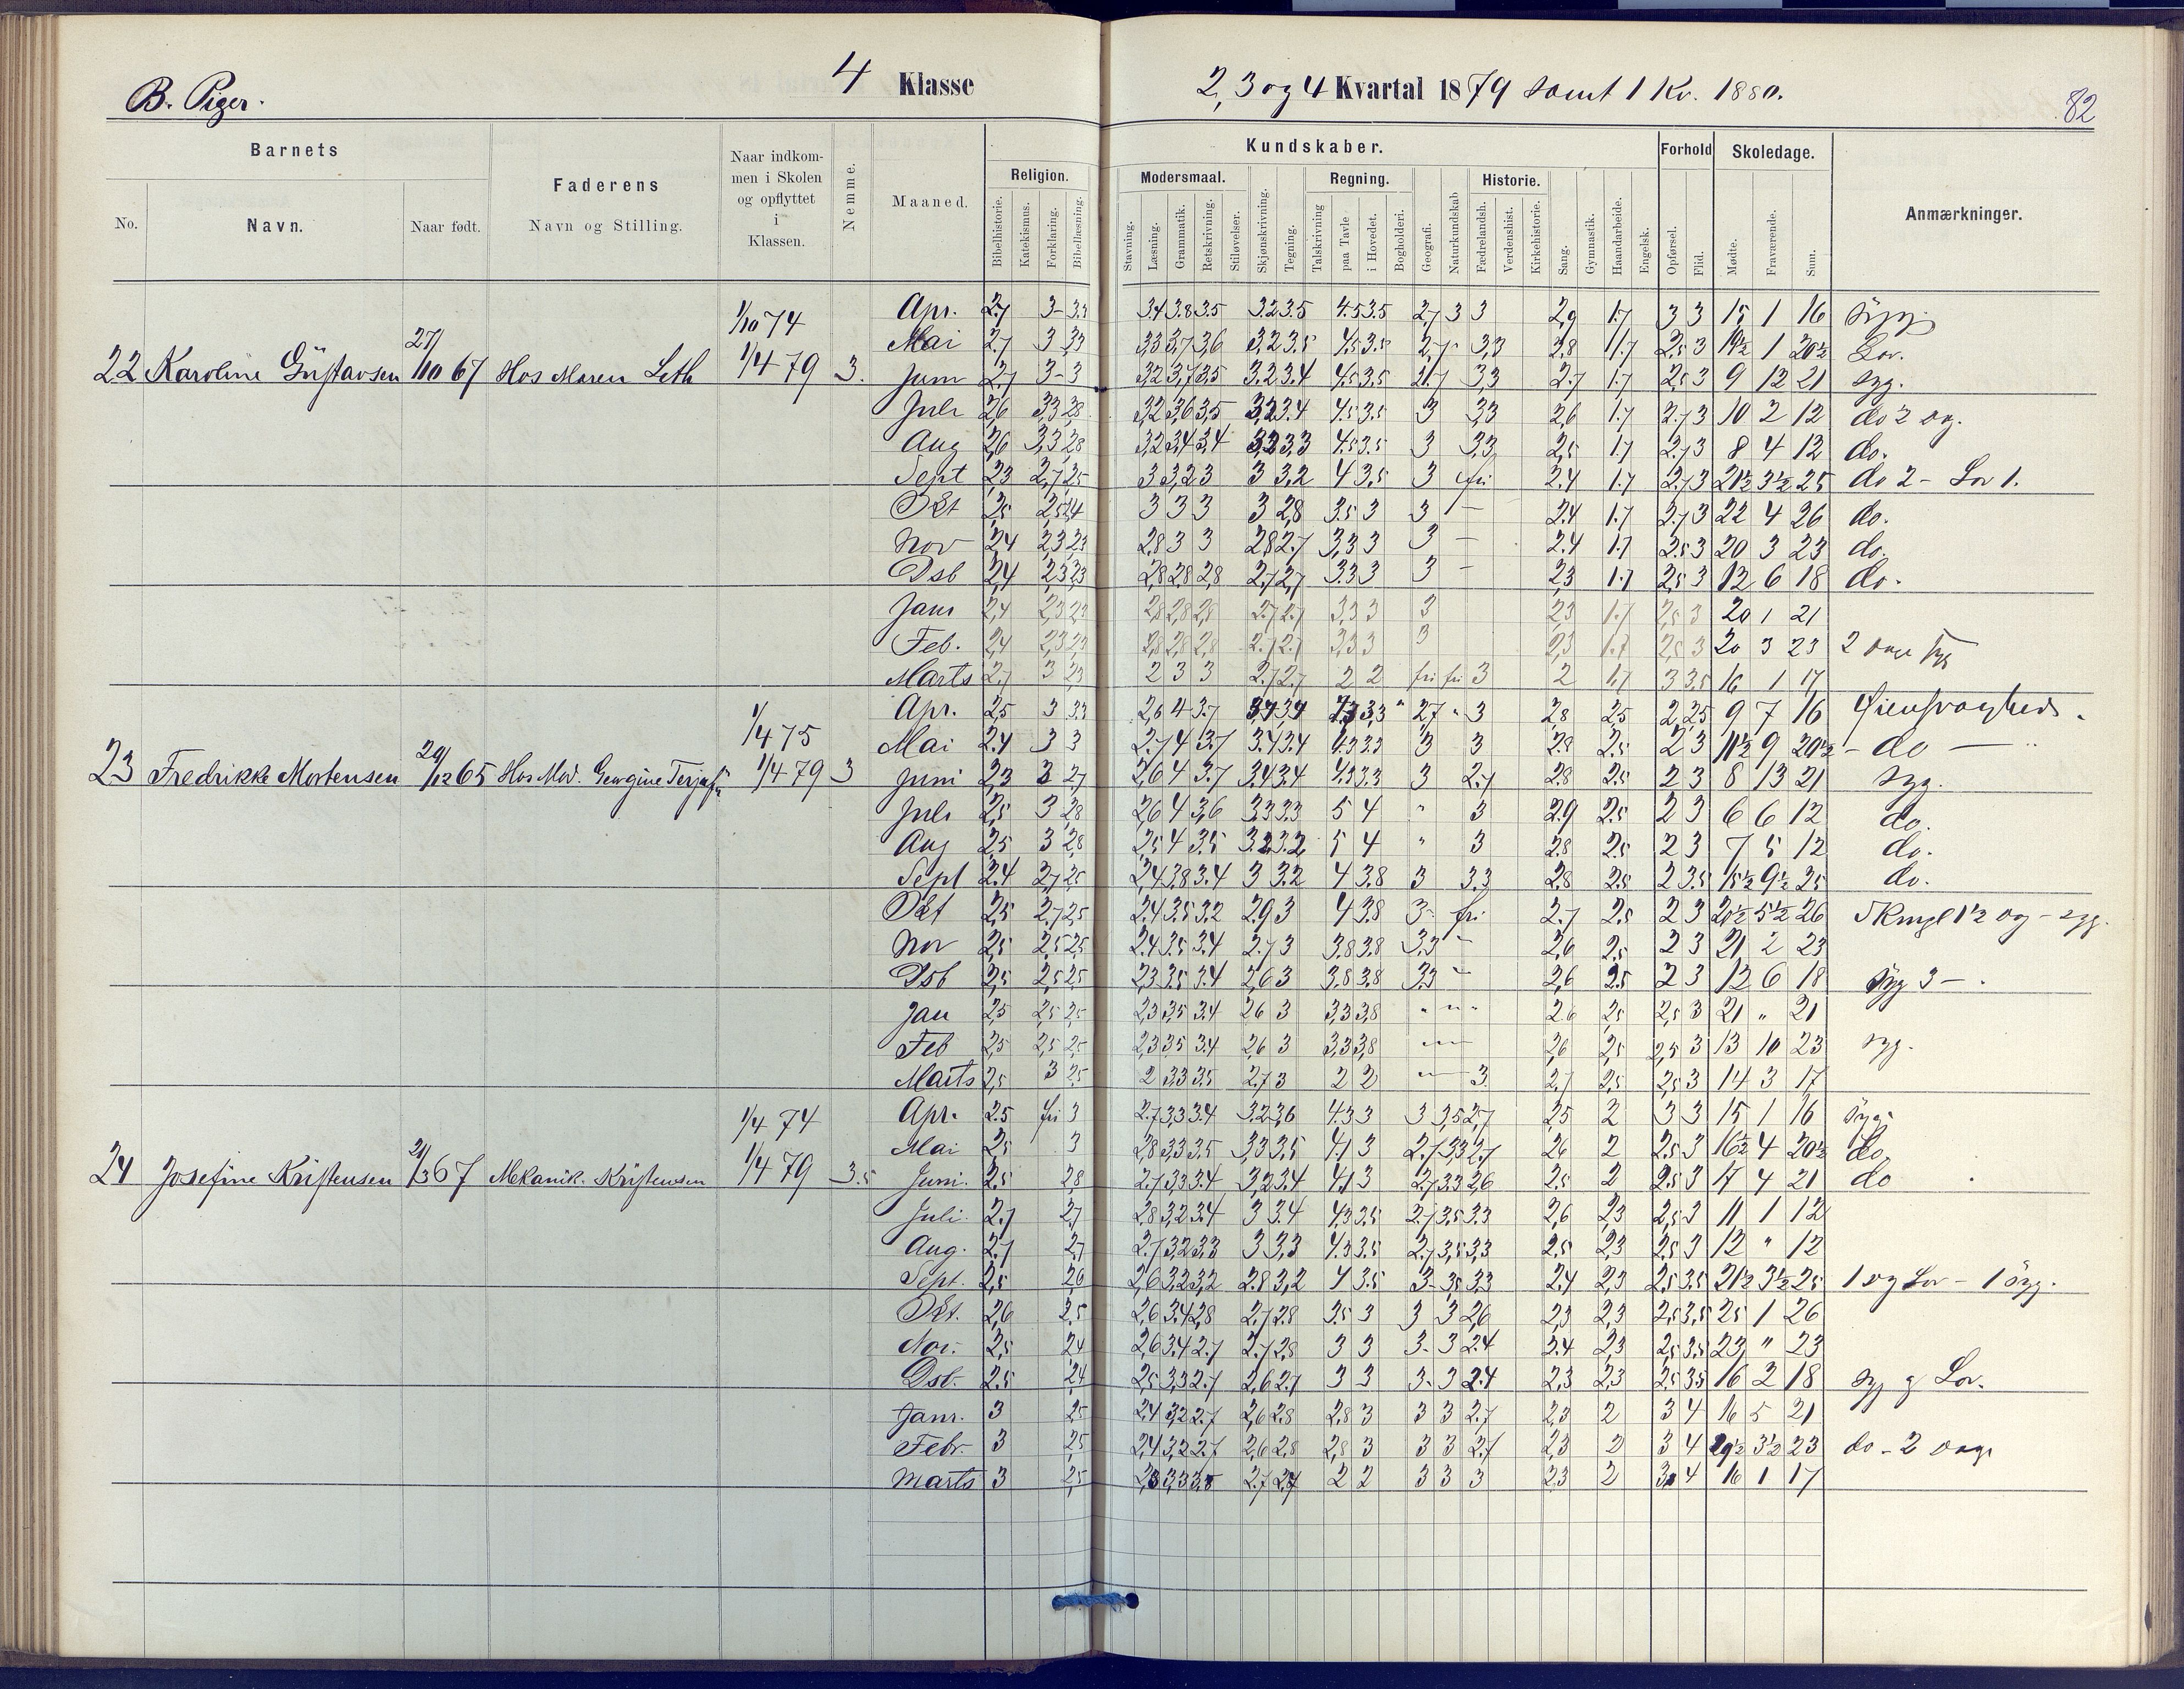 B. Piger.
4 Klasse
2, 3 og 4 Kvartal 1879 samt 1 Kv. 1880.
82
Barnets
Faderens
Naar indkommen i Skolen og opflyttet i Klassen.
Nemme.
Maaned.
Kundskaber.
Forhold
Skoledage.
Anmærkninger.
No.
Navn.
Naar født.
Navn og Stilling.
Religion.
Modersmaal.
Regning.
Historie.
Bibelhistorie. Katekismus. Forklaring. Bibellæsning. Stavning. Læsning. Grammatik. Retskrivning. Stiløvelser. Skjønskrivning. Tegning. Talskrivning paa Tavle i Hovedet. Bogholderi. Geografi. Naturkundskab Fædrelandsh. Verdenshist. Kirkehistorie. Sang. Gymnastik. Haandarbeide. Engelsk. Opførsel. Flid. Mødte. Fraværende. Sum.
1/10 74
22 Karoline Gustavsen 27/10 67 Hos Maren Leth 1/4 79 3.
Apr. 2.7 3 3.3 3.4 3.8 3.5 3.2 3.5 4.5 3.5 2,7 3 3 2,9 1.7 3 3 15 1 16
Mai 2.7 3 3.3 3,3 3,7 3,6 3,2 3.5 4.5 3.5 2,7 3,3 2.8 1.7 2.5 3 19½ 1 20½ Lov.
Juni 2.7 3 3 3,2 3,7 3.5 3.2 3.4 4.5 3.5 3,3 2.7 1.7 2.5 3 9 12 21 syg.
Juli 2,6 3,3 2,8 3,2 3,6 3,5 3,2 3.4 4.5 3.5 3 3,3 2,6 1.7 2.7 3 10 2 12 do 2 og.
Aug 2,6 3,3 2,8 3,2 3,4 3,4 3,2 3,3 4.5 3.5 3 3,3 2,5 1.7 2.7 3 8 4 12 do.
Sept 2,3 2,7 2,5 3 3,2 3 3 3,2 4 3,5 3 fri 2.4 1.7 2.7 3 21½ 3½ 25 do 2 - Lov 1.
Okt 2,5 2,5 2,4 3 3 3 3 2,8 3.5 3 3 - 2.4 1.7 2.7 3 22 4 26 do.
Nov 2,4 2,3 2,3 2,8 3 3 2,8 2.7 3,3 3 3 - 2.4 1.7 2.5 3 20 3 23 do.
Dsb 2,4 2,3 2,3 2,8 2,8 2,8 2,7 2,7 3.3 3 3 - 2,3 1.7 2,5 3 12 6 18 do.
Janr 2,4 2,3 2,3 2,8 2,8 2,8 2.7 2.7 3,3 3 3 2,3 1.7 2,5 3 20 1 21
Feb. 2,4 2,3 2,3 2,8 2,8 2,8 2.7 2.7 3,3 3 3 2,3 1.7 2,5 3 20 3 23
Marts 2.7 3 2,3 2 3 3 2,7 2.7 2 2 fri fri 3 2 1.7 3 3,5 16 1 17
1/4 75
23 Fredrikke Mortensen 29/12 65 1/4 79 3
Apr. 2,5 3 3.3 2,6 4 3.7 3,3 " 2.7 " 3 2.8 2.5 2 2.5 9 7 16
Mai 2.4 3 3 2.7 4 3.7 3.4 3.4 4.3 3.3 3 3 2.8 2.5 2 3 11½ 9 20½ - do -
Juni 2,3 3 2,7 2,6 4 3.7 3.4 3.4 4.3 3.3 3 2.7 2.8 2.5 2 3 8 13 21 syg.
Juli 2,5 3 2,8 2,6 4 3,6 3,3 3.3 5 4 " 3 2.9 2.5 2 3 6 6 12 do.
Aug 2,5 3 2,8 2,5 4 3.5 3.2 3.2 5 4 " 3 2.8 2.5 2 3 7 5 12 do.
Sept 2.4 2,7 2,5 2,4 3.8 3.4 3 3.2 4 3.8 3 3.3 2.8 2.5 2 3.5 15½ 9½ 25 do.
Okt 2,5 2,7 2,5 2.4 3.5 3.2 2.9 3 4 3.8 3 fri 2.7 2.5 2 3 20½ 5½ 26
Nov 2,5 2,5 2,5 2.4 3.5 3.4 2.7 3 3.8 3.8 3,3 - 2,6 2,5 2 3 21 2 23
Dsb 2,5 2,5 2,5 2,3 3.5 3.4 2,6 3 3.8 3.8 3,3 - 2,6 2.5 2 3 12 6 18 syg 3 -
Jan 2,5 2,5 2,5 2,3 3.5 3.4 2.6 3 3,3 3,8 " " " 2.6 2,5 2,5 3 21 " 21
Feb 2,5 2,5 2,5 2,3 3.5 3.4 2,6 3 3,3 3,8 " " 2,6 2,5 2,5 3 13 10 23 syg.
Marts 2,5 3 2,5 2 3.3 3.5 2.7 3 2 2 " 3 2.7 2,5 2,5 3 14 3 17
1/4 74
24 Josefine Kristensen 21/3 67 Mekanik. Kristensen 1/4 79 3.5
Apr. 2.5 fri 3 2.7 3,3 3.4 3.2 3,6 4.3 3 3 3,5 2,7 2,5 2 3 3 15 1 16 syg.
Mai 2,5 3 2,8 3,3 3.5 3,3 3.5 4,1 3 2.7 3,3 2.7 2,6 2 2.5 3 16½ 4 20½ do.
Juni. 2.5 2,8 2.7 3.3 3.4 3,2 3.4 4,1 3 2,7 3.3 2,6 2.5 2 2.5 3 17 4 21 do
Juli 2.7 2,7 2,8 3,2 3.4 3 3.4 4.3 3.5 2.7 3,5 3.3 2,6 2,3 2,5 3 11 1 12
Aug. 2.7 2,7 2.7 3,2 3,3 3 3,3 4.3 3.5 2.7 3,5 3,3 2.5 2,3 2.5 3 12 " 12
Sept. 2,5 2,6 2,6 3,2 3,2 2.8 3,2 4 3.5 3 3,5 3.3 2.4 2,3 2,5 3.5 21½ 3½ 25 1 og Lov - 1 syg.
Okt. 2,6 2,5 2,6 3.4 2,8 2.7 2.8 3.5 3 3 3 2,6 2,3 2,3 2,5 3,5 25 1 26
Nov. 2,5 2,4 2,6 3.4 2.7 2.7 2,8 3 3 3 3 2.4 2.4 2,3 2,5 3.5 23 " 23
Dsb. 2.5 2,4 2,5 3,3 2.7 2,6 2.7 3 3 3 3 2.4 2,3 2,3 2.5 3.5 16 2 18 syg og Lov.
Janr. 3 2,5 2,4 3,2 2.7 2,6 2.8 2,8 3 3 3 2.7 2,3 2 3 4 16 5 21
Febr. 3 2,5 2,4 3,2 2.7 2,6 2,8 2,8 3 3 3 2.7 2,3 2 3 4 19½ 3½ 23 do - 2 dage
Marts 3 2,5 2.7 2 2 3 3 3 2,3 2 3 4 16 1 17